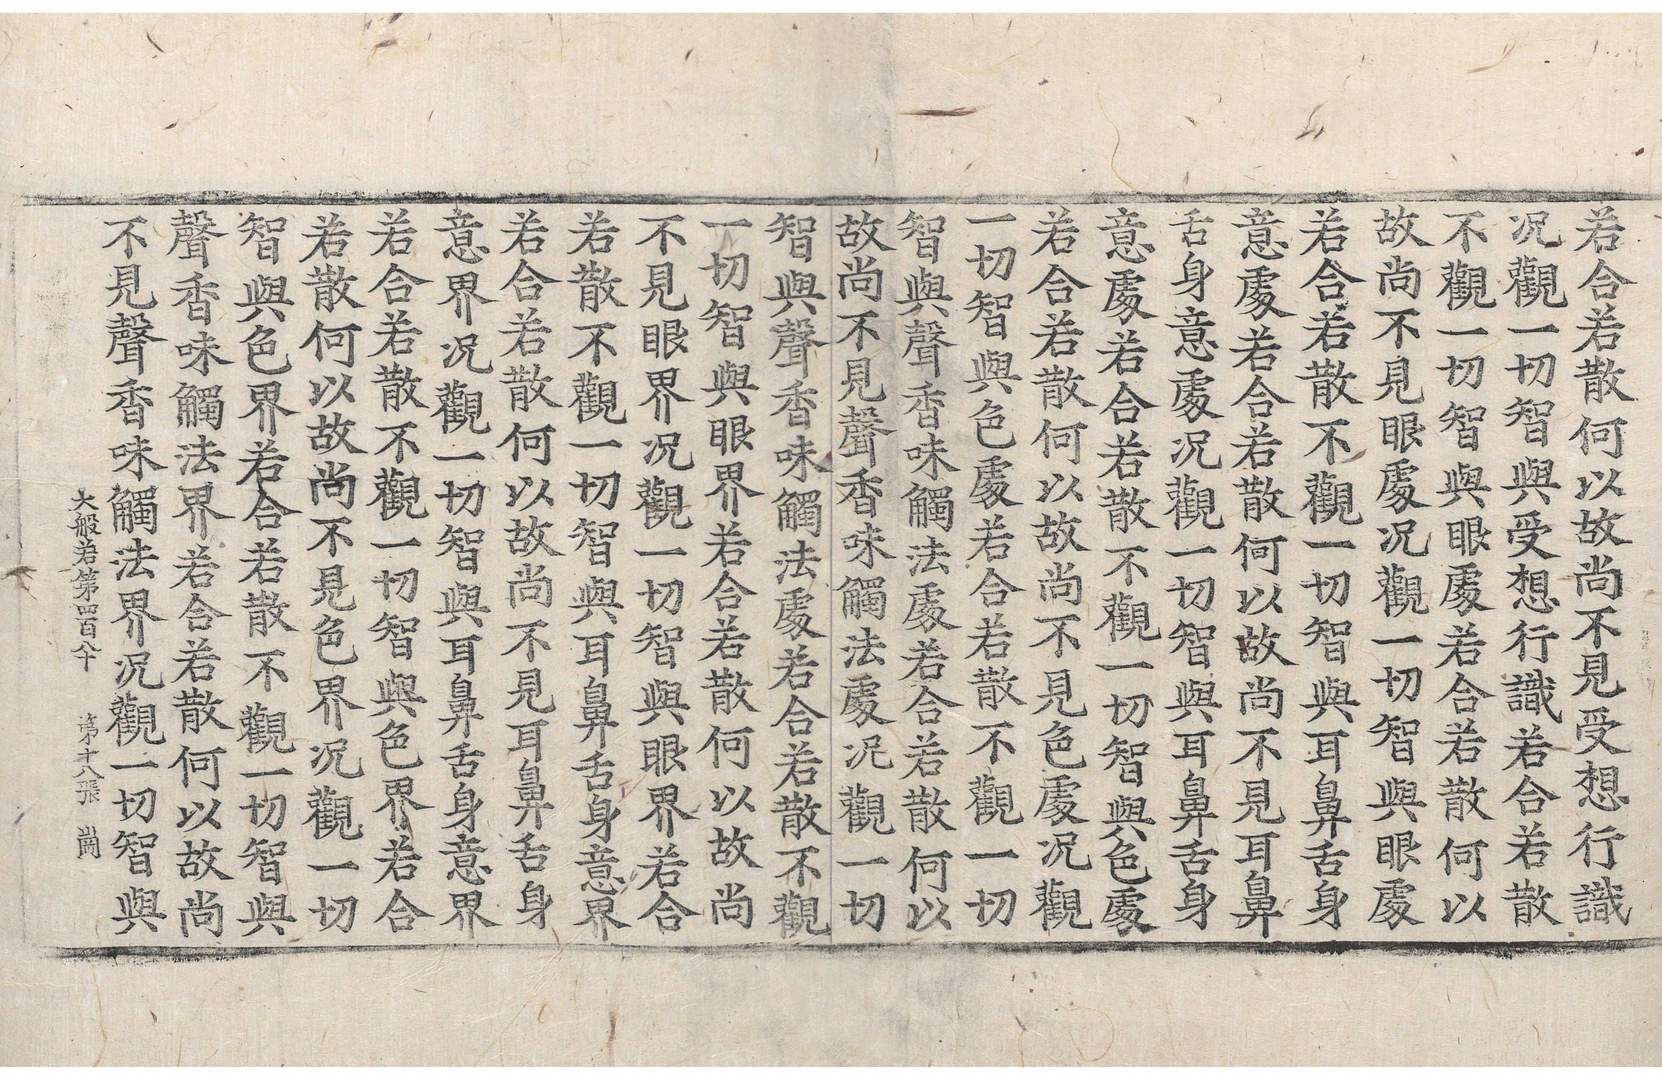 若合若散何以故尚不見受想行識
况觀一切智與受想行識若合若散
不觀一切智與眼處若合若散何以
故尚不見眼處况觀一切智與眼處
若合若散不觀一切智與耳鼻舌身
意處若合若散何以故尚不見耳鼻
舌身意處况觀一切智與耳鼻舌身
意處若合若散不觀一切智與色處
若合若散何以故尚不見色處况觀
一切智與色處若合若散不觀一切
智與聲香味觸法處若合若散何以
故尚不見聲香味觸法處况觀一切
智與聲香味觸法處若合若散不觀
一切智與眼界若合若散何以故尚
不見眼界况觀一切智與眼界若合
若散不觀一切智與耳鼻舌身意界
若合若散何以故尚不見耳鼻舌身
意界况觀一切智與耳鼻舌身意界
若合若散不觀一切智與色界若合
若散何以故尚不見色界况觀一切
智與色界若合若散不觀一切智與
聲香味觸法界若合若散何以故尚
不見聲香味觸法界况觀一切智與
大般若第四百八十 第十八張 崗